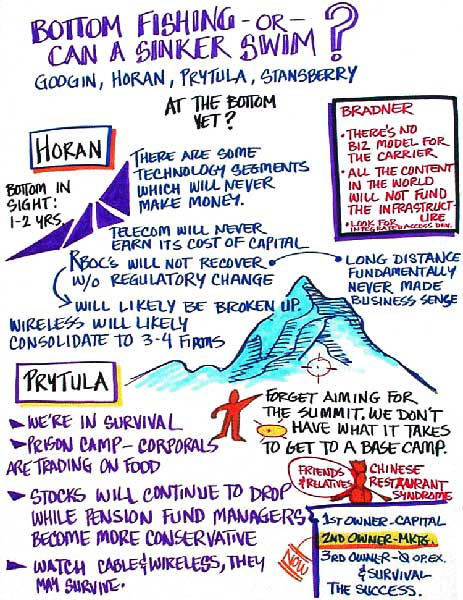 BOTTOM FISHING -OR-
CAN A SINKER SWIM?
GOOGIN, HORAN, PRYTULA, STANSBERRY
AT THE BOTTOM
YET?
HORAN
BOTTOM IN
SIGHT:
1-2 YRS.
THERE ARE SOME
TECHNOLOGY SEGMENTS
WHICH WILL NEVER
MAKE MONEY.
TELECOM WILL NEVER
EARN ITS COST OF CAPITAL
RBOC'S WILL NOT RECOVER
W/O REGULATORY CHANGE
WILL LIKELY BE BROKEN UP
WIRELESS WILL LIKELY
CONSOLIDATE TO 3-4 FIRMS
BRADNER
• THERE'S NO
BIZ MODEL FOR
THE CARRIER
• ALL THE CONTENT
IN THE WORLD
WILL NOT FUND
THE INFRASTRUCT-
URE
• LOOK FOR
INTEGRATED ACCESS DEV.
LONG DISTANCE
FUNDAMENTALLY
NEVER MADE
BUSINESS SENSE
PRYTULA
WE'RE IN SURVIVAL
PRISON CAMP- CORPORALS
ARE TRADING ON FOOD
STOCKS WILL CONTINUE TO DROP
WHILE PENSION FUND MANAGERS
BECOME MORE CONSERVATIVE
WATCH CABLE & WIRELESS, THEY
MAY SURVIVE.
FORGET AIMING FOR
THE SUMMIT. WE DON'T
HAVE WHAT IT TAKES
TO GET TO A BASE CAMP.
FRIENDS
& RELATIVES
CHINESE
RESTAURANT
SYNDROME
1ST OWNER-CAPITAL
NOW
2ND OWNER-MKTG.
3RD OWNER- OPEX.
& SURVIVAL
THE SUCCESS.